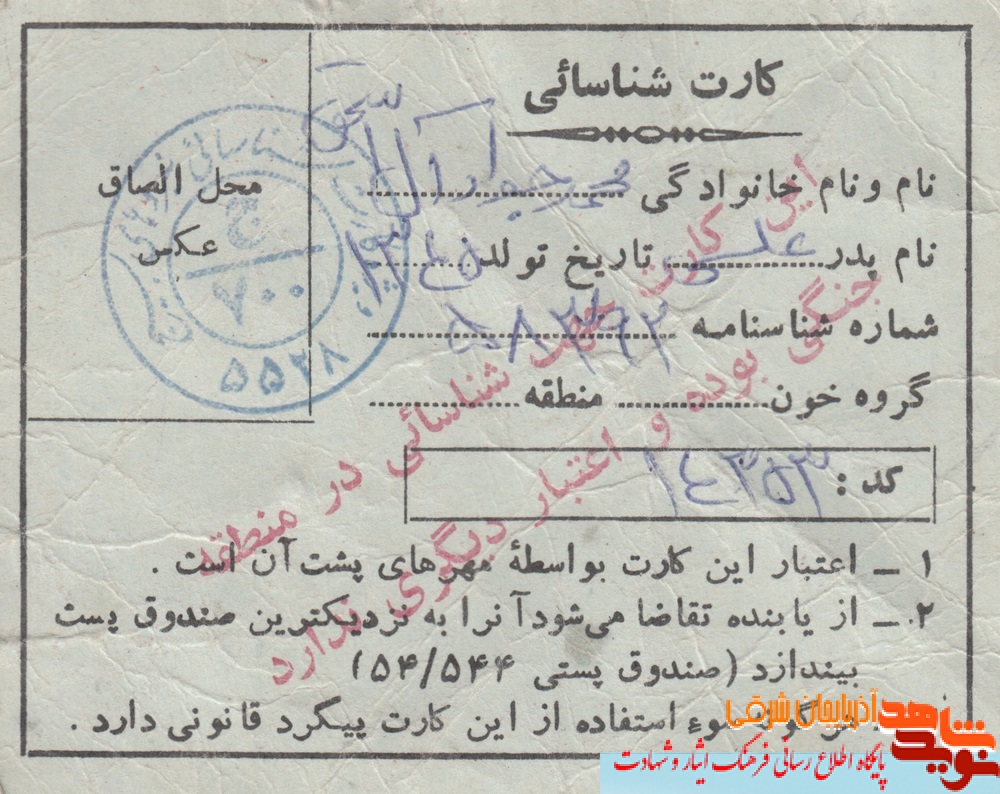 کارت شناسائی
نام و نام خانوادگی
نام پدر علی تاریخ تولد
شماره شناسنامه
گروه خون منطقه
محل الصاق
عکس
ج
۷۰۰
۵۵۲۸
کد : ۱٤۳۵۳
این کارت جهت شناسائی در منطقه
جنگی بوده و اعتبار دیگری ندارد
۱ ـ اعتبار این کارت بواسطهٔ مهرهای پشت آن است .
۲ ـ از یابنده تقاضا می‌شود آنرا به نزدیکترین صندوق پست
بیندازد (صندوق پستی ۵۴/۵۴۴)
هرگونه سوء استفاده از این کارت پیگرد قانونی دارد .
نوید شاهد
آذربایجان شرقی
پایگاه اطلاع رسانی فرهنگ ایثار و شهادت